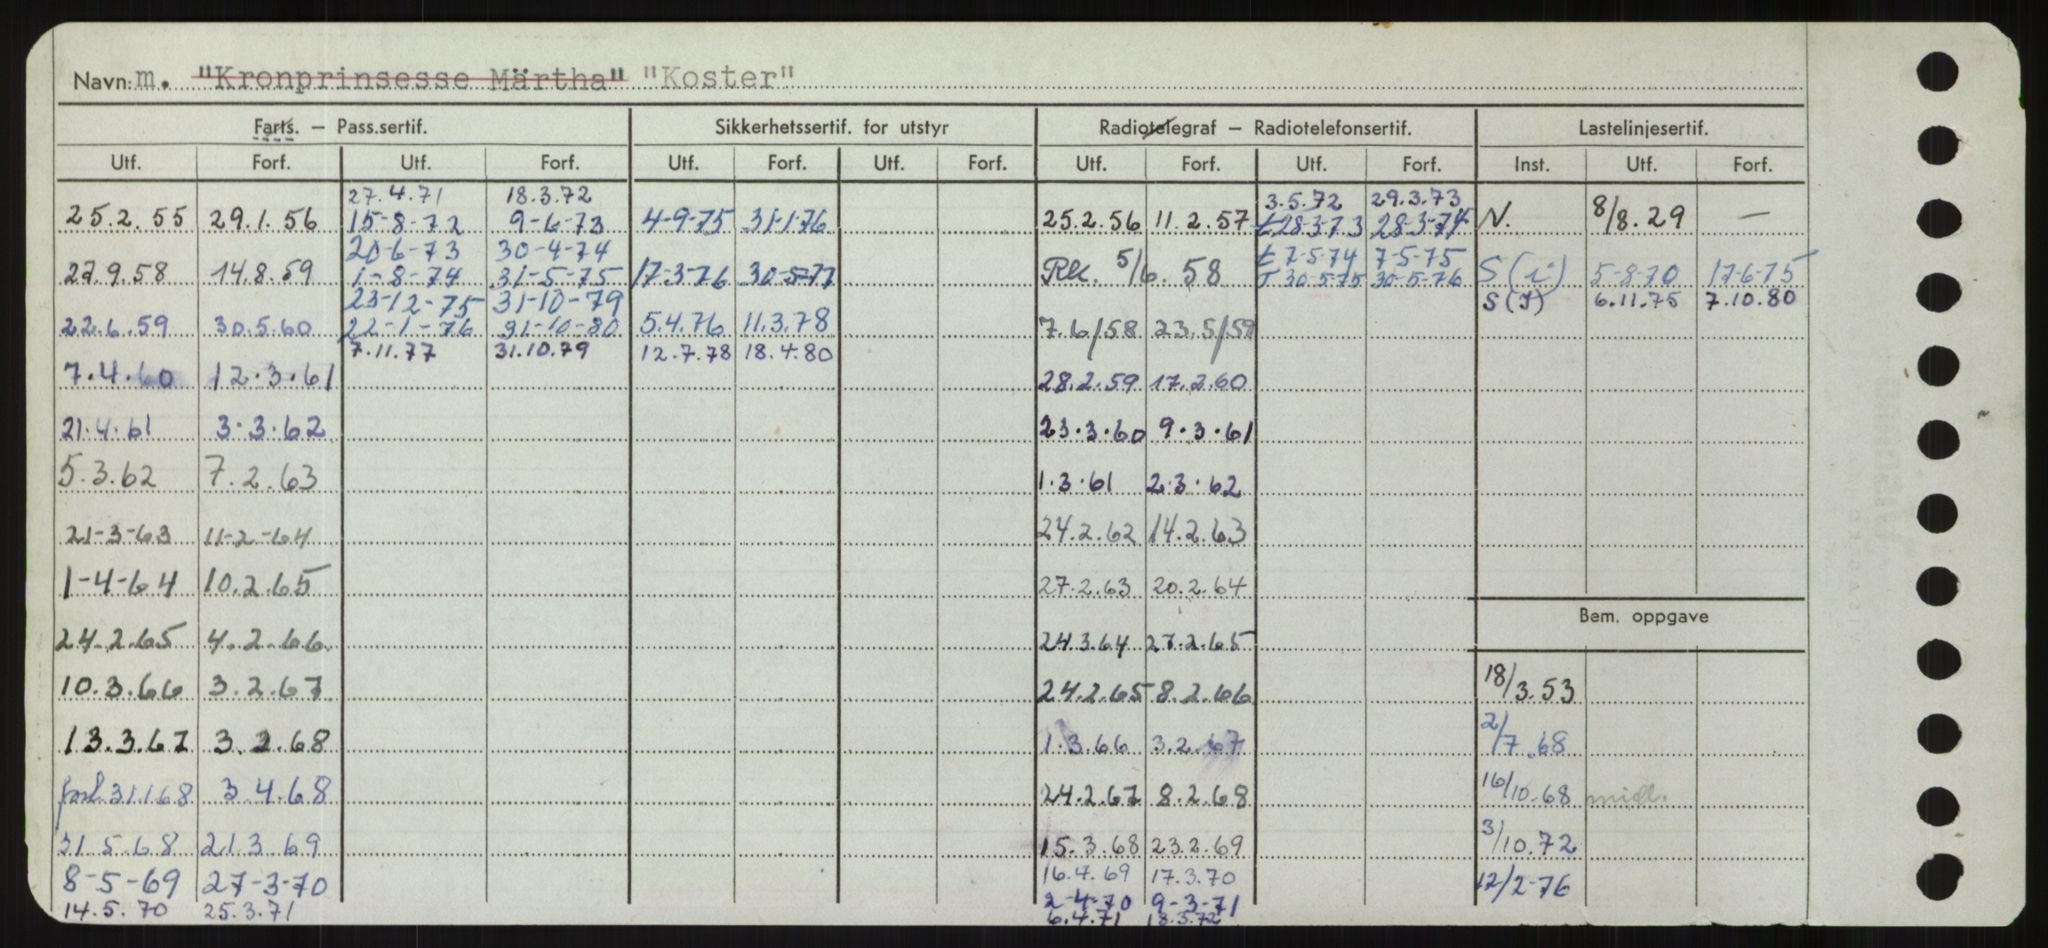 Navn: m. "Kronprinsesse Märtha" "Koster"
Farts. – Pass.sertif. Sikkerhetssertif. for utstyr Radiotelegraf – Radiotelefonsertif. Lastelinjesertif.
Utf. Forf. Utf. Forf. Utf. Forf. Utf. Forf. Utf. Forf. Utf. Forf. Inst. Utf. Forf.
27.4.71 18.3.72 3.5.72 29.3.73
25.2.55 29.1.56 15-8-72 9-6-73 4-9-75 31-1-76 25.2.56 11.2.57 t 28-3-73 28-3-74 N. 8/8.29 —
20-6-73 30-4-74 t 7-5-74 7-5-75
27.9.58 14.8.59 1-8-74 31-5-75 17-3-76 30-5-77 RK. 5/6.58 T 30-5-75 30-5-76 S (i) 5-8-70 17-6-75
23-12-75 31-10-79 S (I) 6.11.75 7.10.80
22.6.59 30.5.60 22-1-76 31-10-80 5.4.76 11.3.78 7.6/58 23.5/59
7.11.77 31.10.79 12.7.78 18.4.80
7.4.60 12.3.61 28.2.59 17.2.60
21.4.61 3.3.62 23.3.60 9.3.61
5.3.62 7.2.63 1.3.61 2.3.62
21-3-63 11-2-64 24.2.62 14.2.63
1-4-64 10.2.65 27.2.63 20.2.64
Bem. oppgave
24.2.65 4.2.66 24.3.64 27.2.65
10.3.66 3.2.67 24.2.65 8.2.66 18/3.53
13.3.67 3.2.68 1.3.66 3.2.67 2/7.68
forl. 31.1.68 3.4.68 24.2.67 8.2.68 16/10.68 midl.
31.5.68 21.3.69 15.3.68 23.2.69 3/10.72
8-5-69 27-3-70 16.4.69 17.3.70 12/2-76
14.5.70 25.3.71 2-4-70 9-3-71
6.4.71 18.3.72